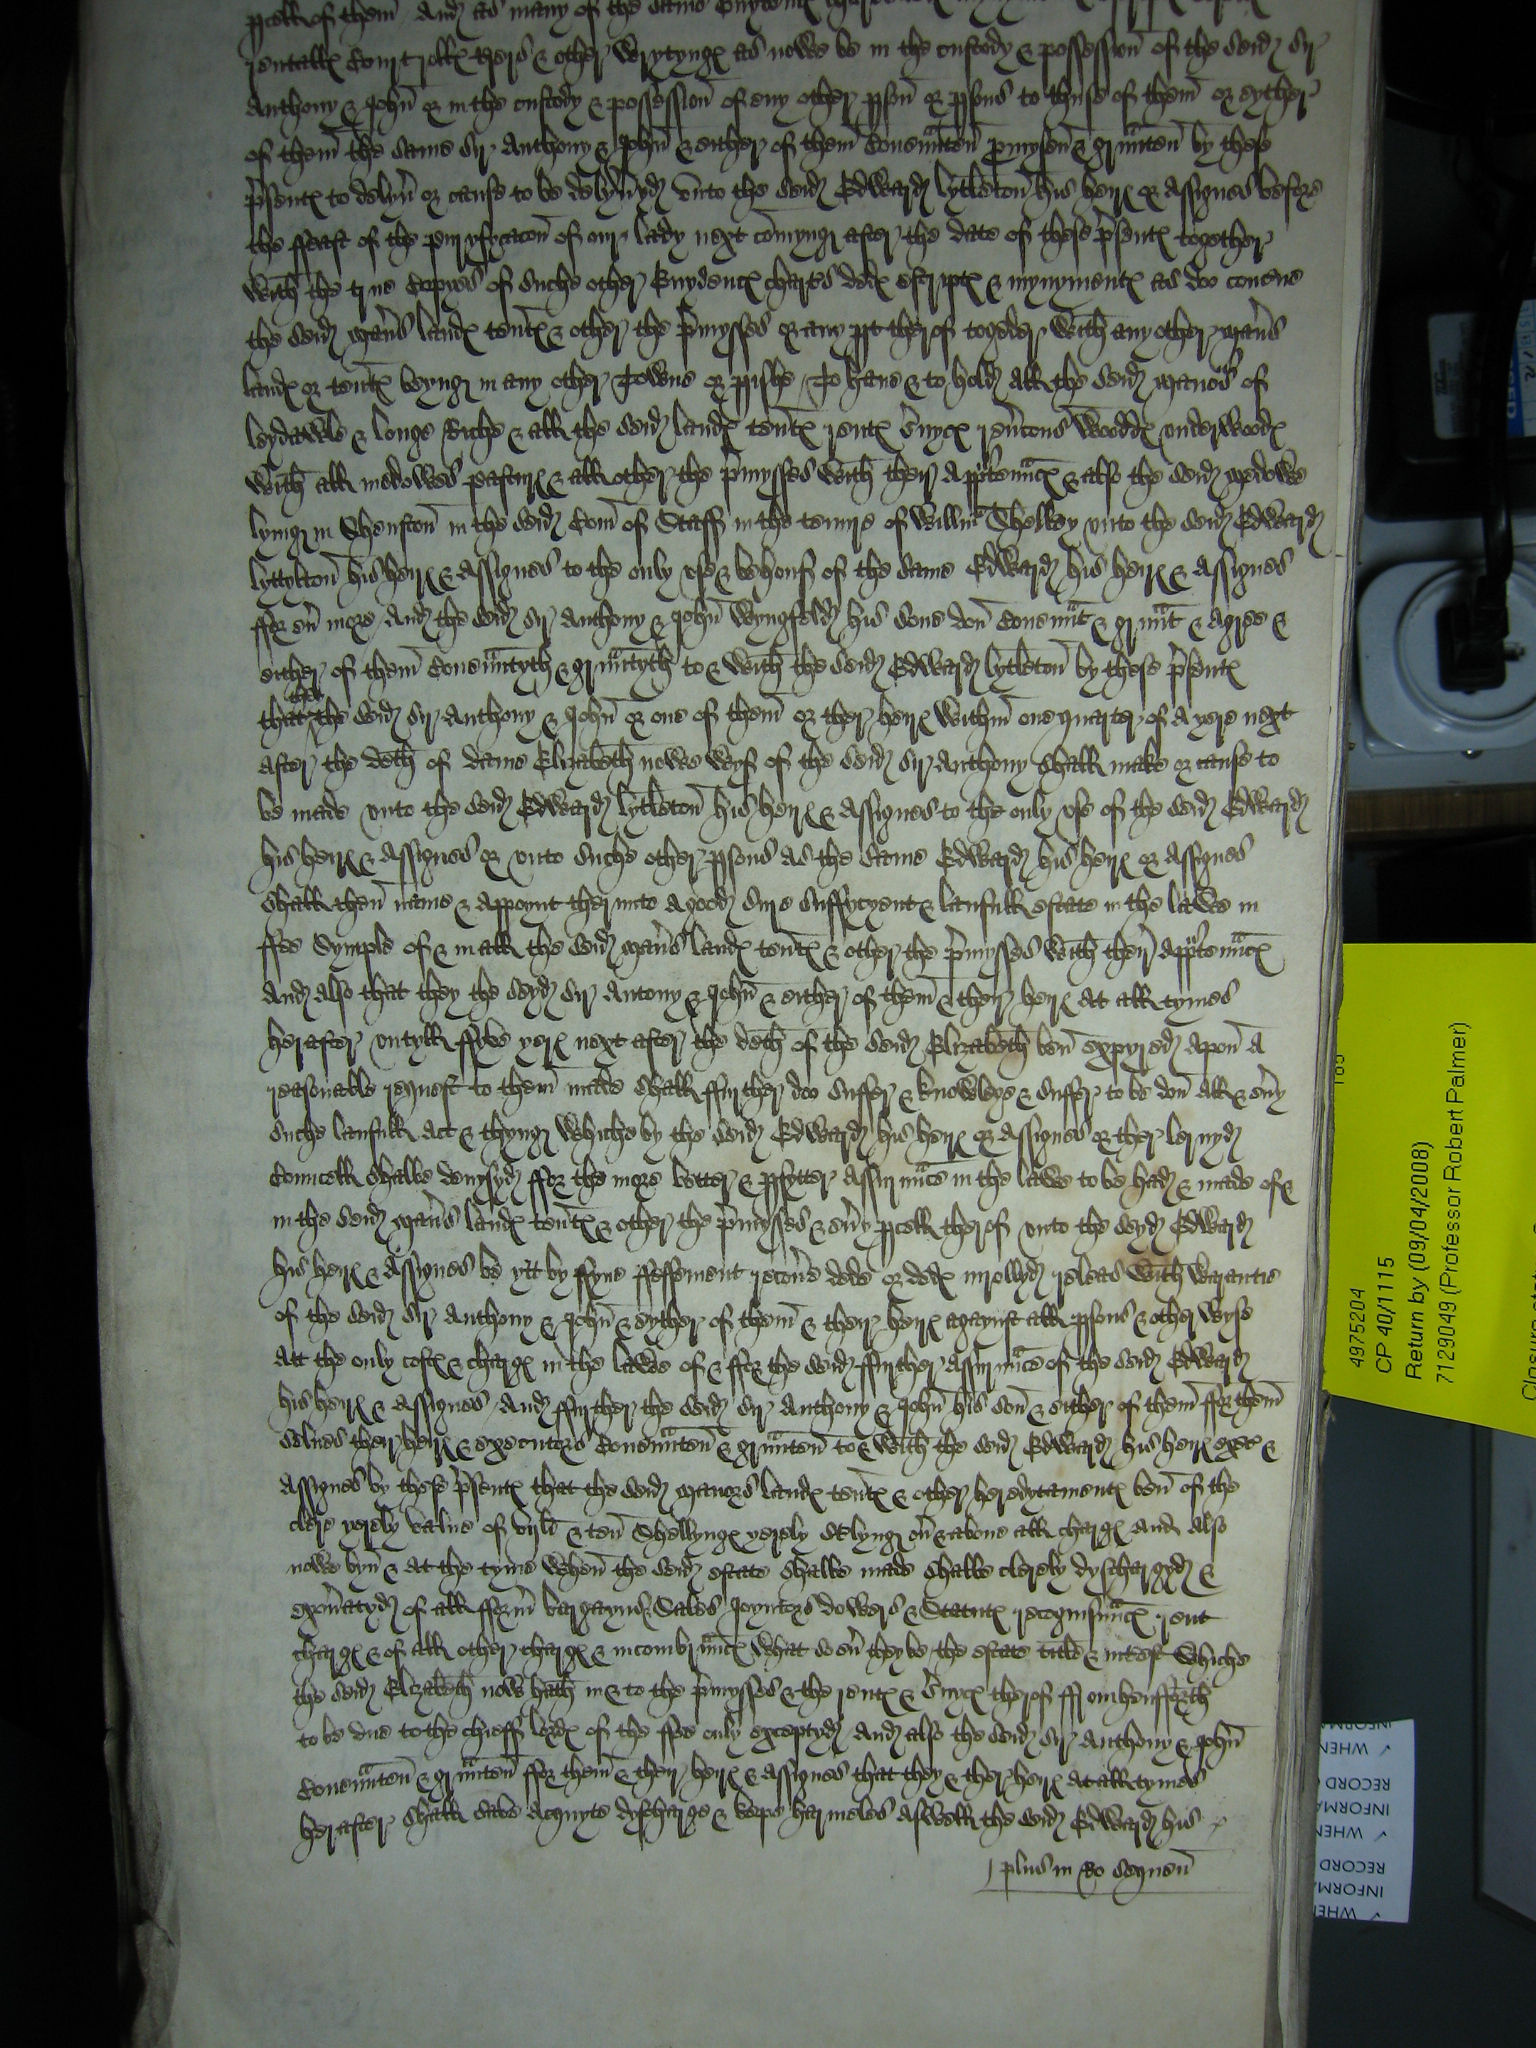 pcell of them And as many of the same
rentallx Court rollx & other wrytyngx as nowe be in the custody & possession of the seid Sir
Anthony & John or in the custody & possession of eny other pson or psons to thuse of them or eyther
of them the same Sir Anthony & John & either of them Covenaten promysen & graunten by these
psentx to delyv or cause to be delyvyd unto the seid Edward lytleton his heirx or assignes before
the ffeast of the puryfycacon of our lady next comyng after the date of these psentx together
with the true Copyes of suche other Euydencx chartes dedx escriptx & mynymentx as doo concne
the seid maners landx tentx & other the pmysses or any pt therof togeder with any other maners
landx or tentx beyng in any other Towne or pishe To have & to hold all the seid manors of
leydawle & longe Riche & all the seid landx tentx rentx svycx revcons Wooddx underwoodx
with all medowes pasturx & all other the pmysses with their apptenncx & also the seid medowe
lying in Shenston in the seid Com of Staff in the tenure of Willm Shelley unto the seid Edward
lyttylton his heirx & assignes to the only use & behouf of the same Edward his heirx & assignes
ffor ev more And the seid Sir Anthony & John Wyngfeld his sone don Covenant & graunt & agree &
either of them Covenntyth & grauntyth to & with the seid Edward lytleton by these psentx
that they
the seid Sir Anthony & John or one of them or ther heirx within one quarter of a yere next
after the deth of dame Elizabeth nowe wyf of the seid Sir Anthony shall make or cause to
be made unto the seid Edward lytleton his heirx & assignes to the only use of the seid Edward
his heirx & assignes or unto suche other psons as the same Edward his heirx or assignes
shall then name & appoynt therunto a good sure suffycyent & laufull estate in the lawe in
ffee Symple of & in all the seid maners landx tentx & other the pmysses with their apptenncx
And also that they the seyd Sir Antony & John & either of them & their heirx at all tymes
herafter untyll ffyve yerx next after the deth of the seid Elizabeth ben expyred apon a
reasonable request to them made shall ffurther doo suffer & knowlege & suffer to be don all & evy
suche laufull act & thyng whiche by the seid Edward his heirx or assignes or ther lernyd
Councell shalbe devysyd ffor the more better & pfytter assurance in the lawe to be had & made of &
in the seid maners landx tentx & other the pmysses & evy pcell therof unto the seyd Edward
his heirx & assignes be ytt by ffyne ffeffement recove dede or dedx inrollyd releas with warantie
of the seid Sir Anthony & John & eyther of them & their heirx agaynst all psons & other wyse
att the only costx & chargx in the lawe of & ffor the seid ffurther assurance of the seid Edward
his heirx & assignes And ffurther the seid Sir Anthony & John his son & either of them ffor them
selves their heirx & executors Covenanten & graunten to & with the seid Edward his heirx exec &
assignes by these psentx that the seid manors landx tentx & other heredytamentx ben of the
clere yerely value of & ten Shellyngx yerely Stlyng ov & above all chargx And also
nowe byn & at the tyme when the seid estate shalbe made shalbe clerely dyschargyd &
exonatyd of all fform bargayns Sales Joyntors dowers & Statutx recognisancx rent
chargx & of all other chargx & incombrancx what soev they be the estate title & intest whiche
the seid Elizabeth now hath in & to the pmysses & the rentx & svycx therof ffrom hensfforth
to be due to the chieff lordx of the ffee only exceptyd And also the seid Sir Anthony & John
Covenanten & graunten ffor them & their heirx & assignes that they & ther heirx at all tymes
herafter shall save acquyte dyscharge & kepe harmeles aswell the seid Edward his
plus in Ro sequen
4975204
CP 40/1115
Return by (09/04/2008)
7129049 (Professor Robert Palmer)